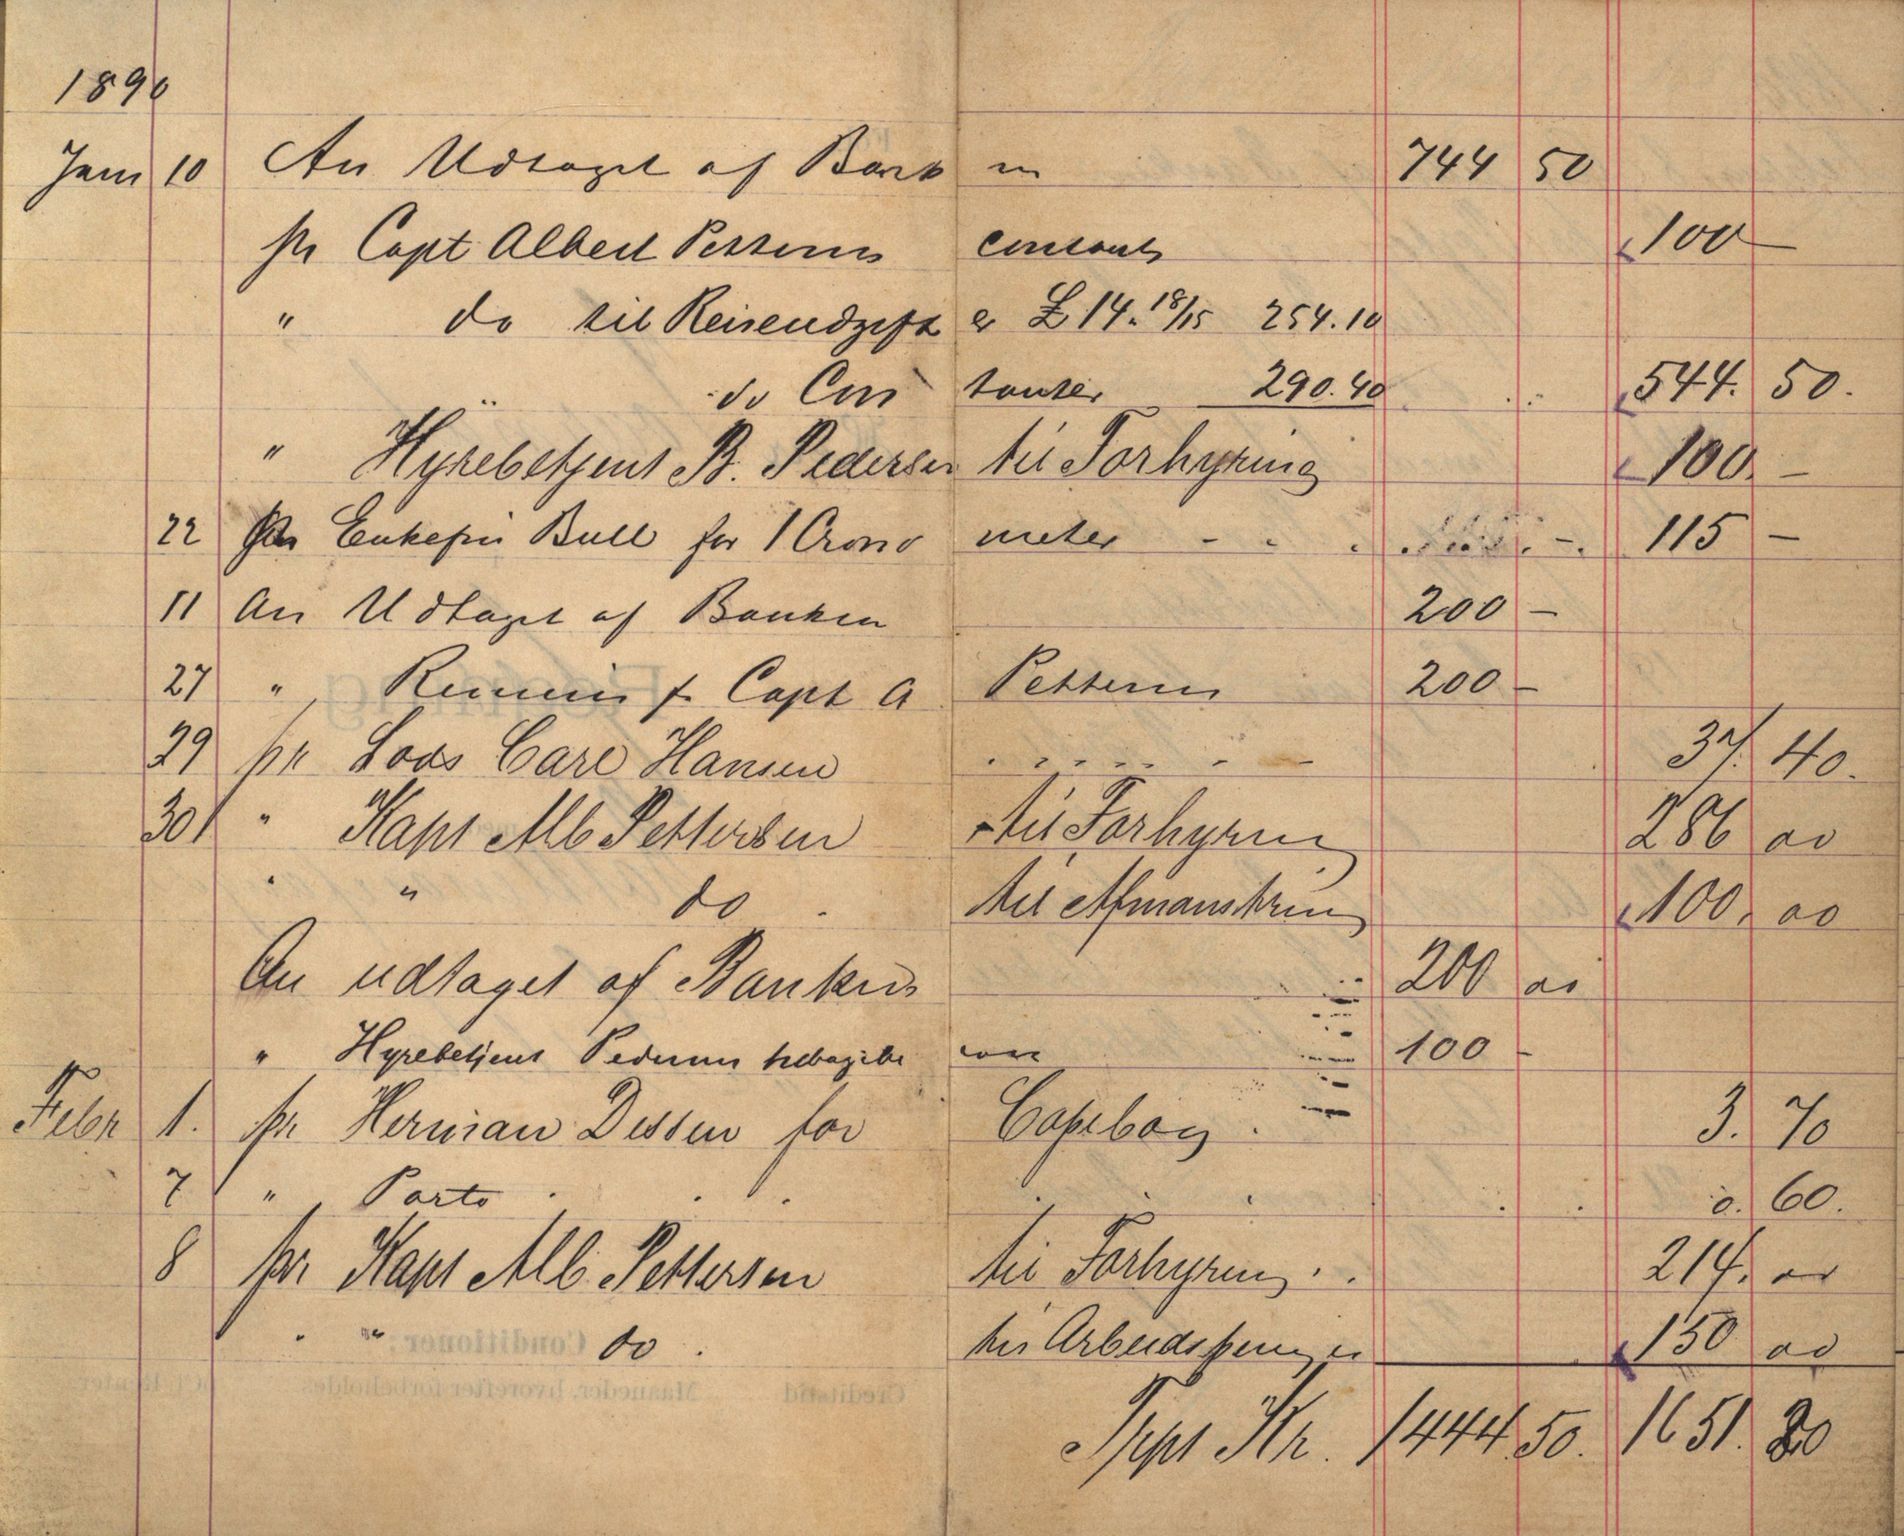 1890
Janr 10 An Udtaget af Banken 744 50
pr Capt Albert Pettersen contant 100 —
" do til Reiseudgifter £ 14. 18/15 254.10
do Contanter 290.40 544. 50.
" Hyrebetjent B. Pedersen til Forhyring 100. —
22 pr Enkefru Bull for 1 Cronometer - - - 115 —
11 An Udtaget af Banken 200 —
27 " f Capt A Pettersen 200 —
29 pr Lods Carl Hansen 37. 40.
30 " Kapt Alb Pettersen til Forhyring 286 00
" " do til Afmønstring 100. 00
An udtaget af Banken 200 00
" Hyrebetjent Pedersen 100 -
Febr 1. pr Herman Dessen for Copibog 3. 70
7 " Porto 0. 60.
8 pr Kapt Alb. Pettersen til Forhyring 214. 00
" " do til Arbeidspenger 150 00
Trpt Kr. 1444 50. 1651. 20
Conditioner:
Credittid Maaneder, hvorefter forbeholdes